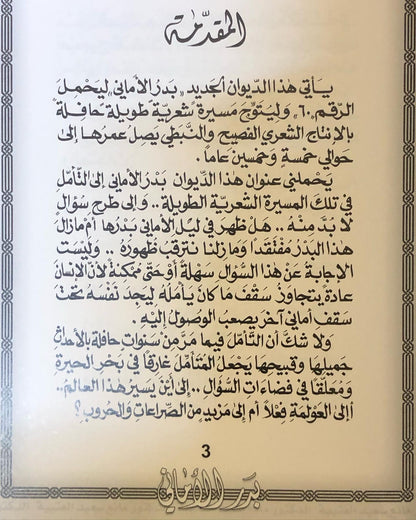 المقدّمة
يأتي هذا الدّيوان الجديد «بَدرُ الأماني» ليَحْمِلَ
الرّقم «٦٠» وَليُتوِّجَ مَسيرة شعريّة طويلة حَافلة
بالإنتاج الشعري الفصيح والنّبَطي يَصِلُ عمرُها إلى
حَوالي خمسةٍ وَخمسين عاماً.
يَحْملني عنوان هذا الدّيوان بَدْرُ الأماني إلى التّأمّلِ
في تلك المسيرة الشعريّة الطويلة.. وإلى طرح سُؤال
لا بدَّ منْهُ.. هَل ظهَر في ليْلِ الأماني بَدْرُها أم مَازالَ
هذا البَدْرُ مُفْتقَداً وَمازلنا نترقبُ ظهُورهُ.. وليْسَت
الإجابة عَن هذا السّؤال سَهْلة أوْ حَتى ممكنة لأنّ الإنسَانَ
عادة يتجاوزُ سقْفَ مَا كان يأملُه ليَجدَ نَفْسَهُ تحْتَ
سَقفِ أماني آخر يصعبُ الوصُول إليْهِ
وَلا شكّ أن التأمّل فيما مَرّ من سَنواتٍ حافلة بالأحداثِ
جَميلها وقبيحها يَجْعلُ المتأمّلَ غارقًا في بَحْر الحيرةِ
وَمُعلّقاً في فضاءاتِ السُّؤال.. إلى أيْنَ يَسيرُ هذا العالمُ..
أإلى العَوْلمةِ فِعْلاً أم إلى مَزيدٍ مِنَ الصّراعاتِ وَالحُروبِ؟
3
بَدرُ الأماني